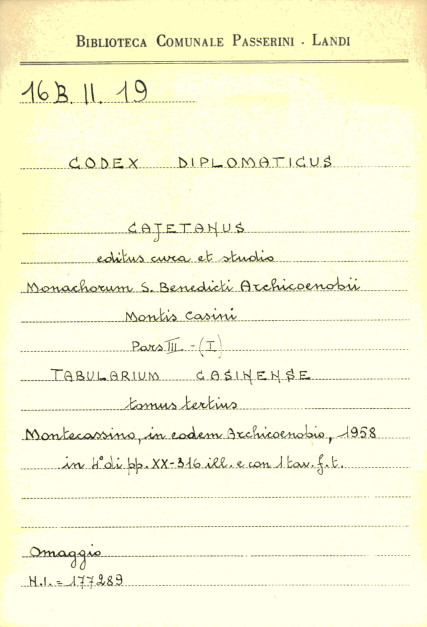 BIBLIOTECA COMUNALE PASSERINI - LANDI
16 B. II. 19
CODEX DIPLOMATICUS
CAJETANUS
editus cura et studio
Monachorum S. Benedicti Archicoenobii
Montis Casini
Pars III - (I)
TABULARIUM CASINENSE
tomus tertius
Montecassino, in eodem Archicoenobio, 1958
in 4° di pp. XX-316 ill. e con 1 tav. f. t.
Omaggio
N.I. = 177289